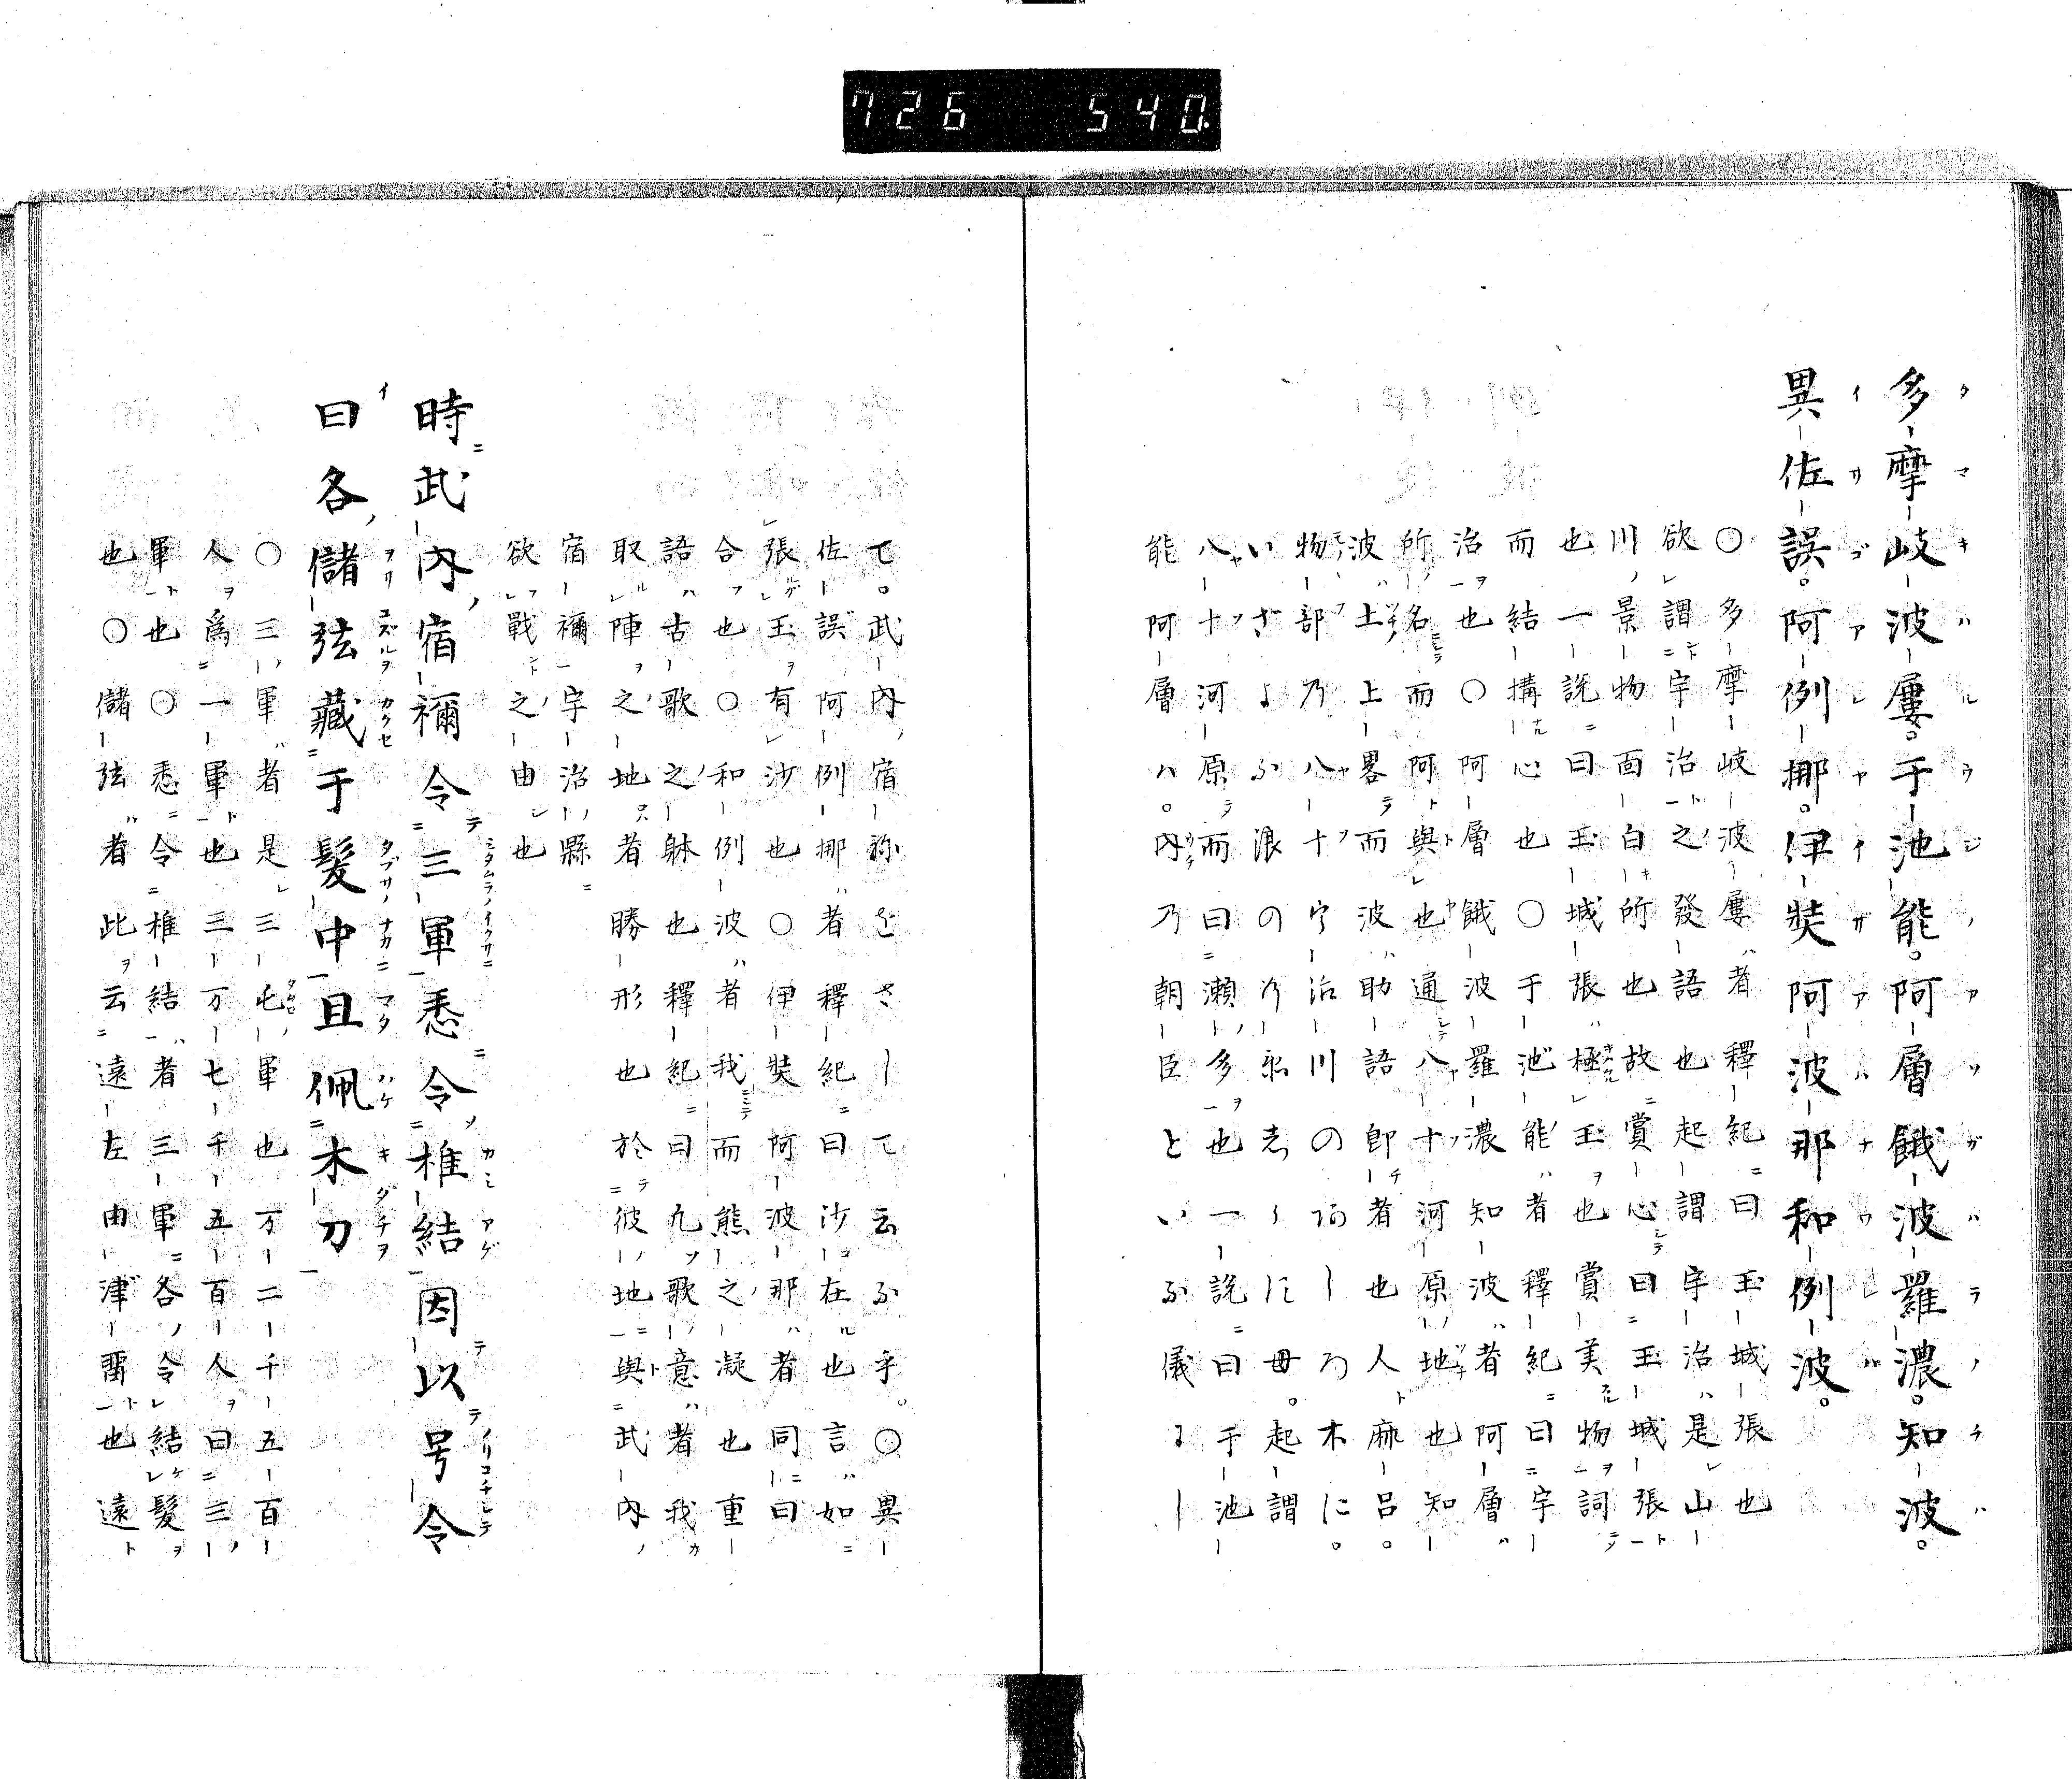 726 540.
多摩岐波屢。于池能。阿層餓波羅濃。知波。
異佐誤。阿例揶。伊奘阿波那和例波。
○多摩岐波屢者釋紀曰玉城張也
欲謂宇治之發語也起謂宇治是山
川景物面白所也故賞心曰玉城張
也一説曰玉城張極玉也賞美物詞
而結搆心也○于池能者釋紀曰宇
治也○阿層餓波羅濃知波者阿層
所名而阿與也通八十河原地也知
波上上畧而波助語即者也人麻呂。
物部乃八十宇治川のあしろ木に。
いざよふ浪の行衛しらに母。起謂
八十河原而曰瀬多也一説曰于池
能阿層ハ。内乃朝臣といふ儀にし
て。武内宿祢をさして云ふ乎。○異
佐誤阿例揶者釋紀曰沙在也言如
張玉有沙也○伊奘阿波那者同曰
合也○和例波者我而熊之凝也重
語古歌之躰也釋紀曰凡歌意者我
取陣之地者勝形也於彼地與武内
宿禰宇治縣
欲戰之由也
時武内宿禰令三軍悉令椎結因以号令
曰各儲弦藏于髮中且佩木刀
○三軍者是三屯軍也万二千五百
人為一軍也三万七千五百人曰三
軍也○悉令椎結者三軍各令結髮
也○儲弦者此云遠左由津留也遠